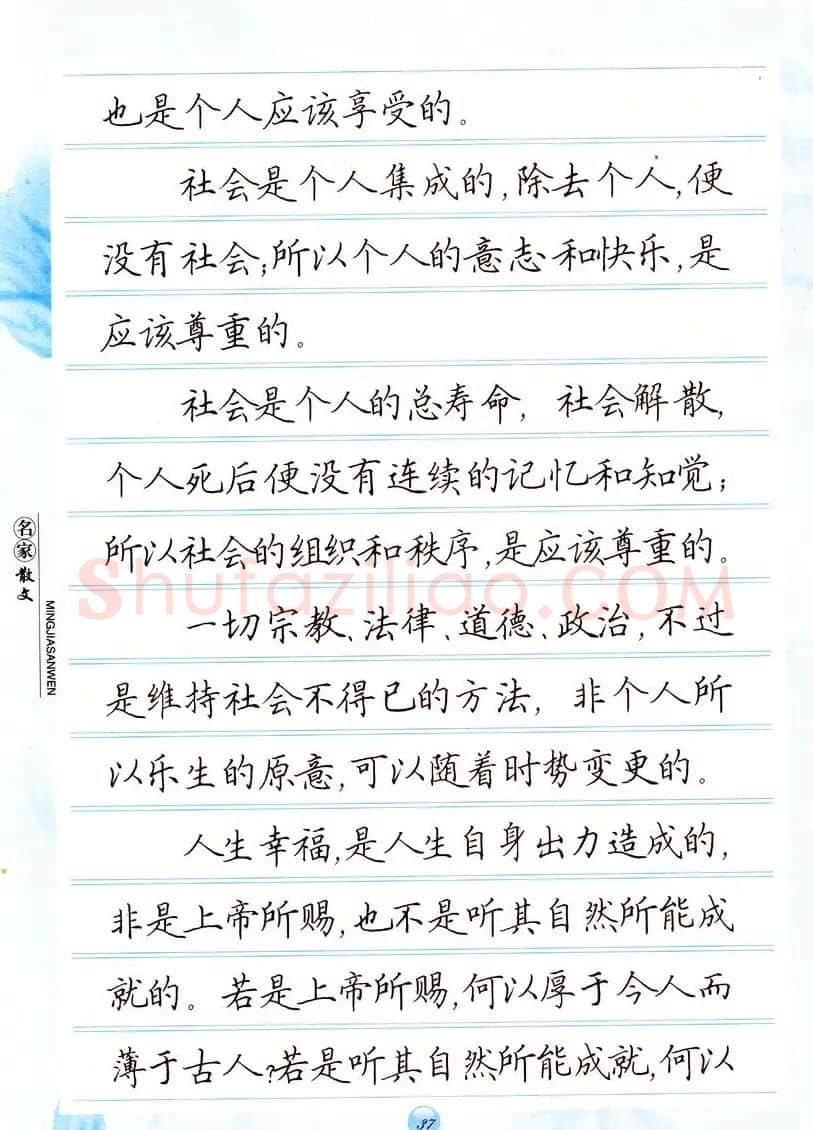 也是个人应该享受的。
社会是个人集成的,除去个人,便
没有社会;所以个人的意志和快乐,是
应该尊重的。
社会是个人的总寿命,社会解散,
个人死后便没有连续的记忆和知觉;
所以社会的组织和秩序,是应该尊重的。
一切宗教、法律、道德、政治,不过
是维持社会不得已的方法,非个人所
以乐生的原意,可以随着时势变更的。
人生幸福,是人生自身出力造成的,
非是上帝所赐,也不是听其自然所能成
就的。若是上帝所赐,何以厚于今人而
薄于古人?若是听其自然所能成就,何以
名家散文
MINGJIASANWEN
Shufaziliao.COM
37